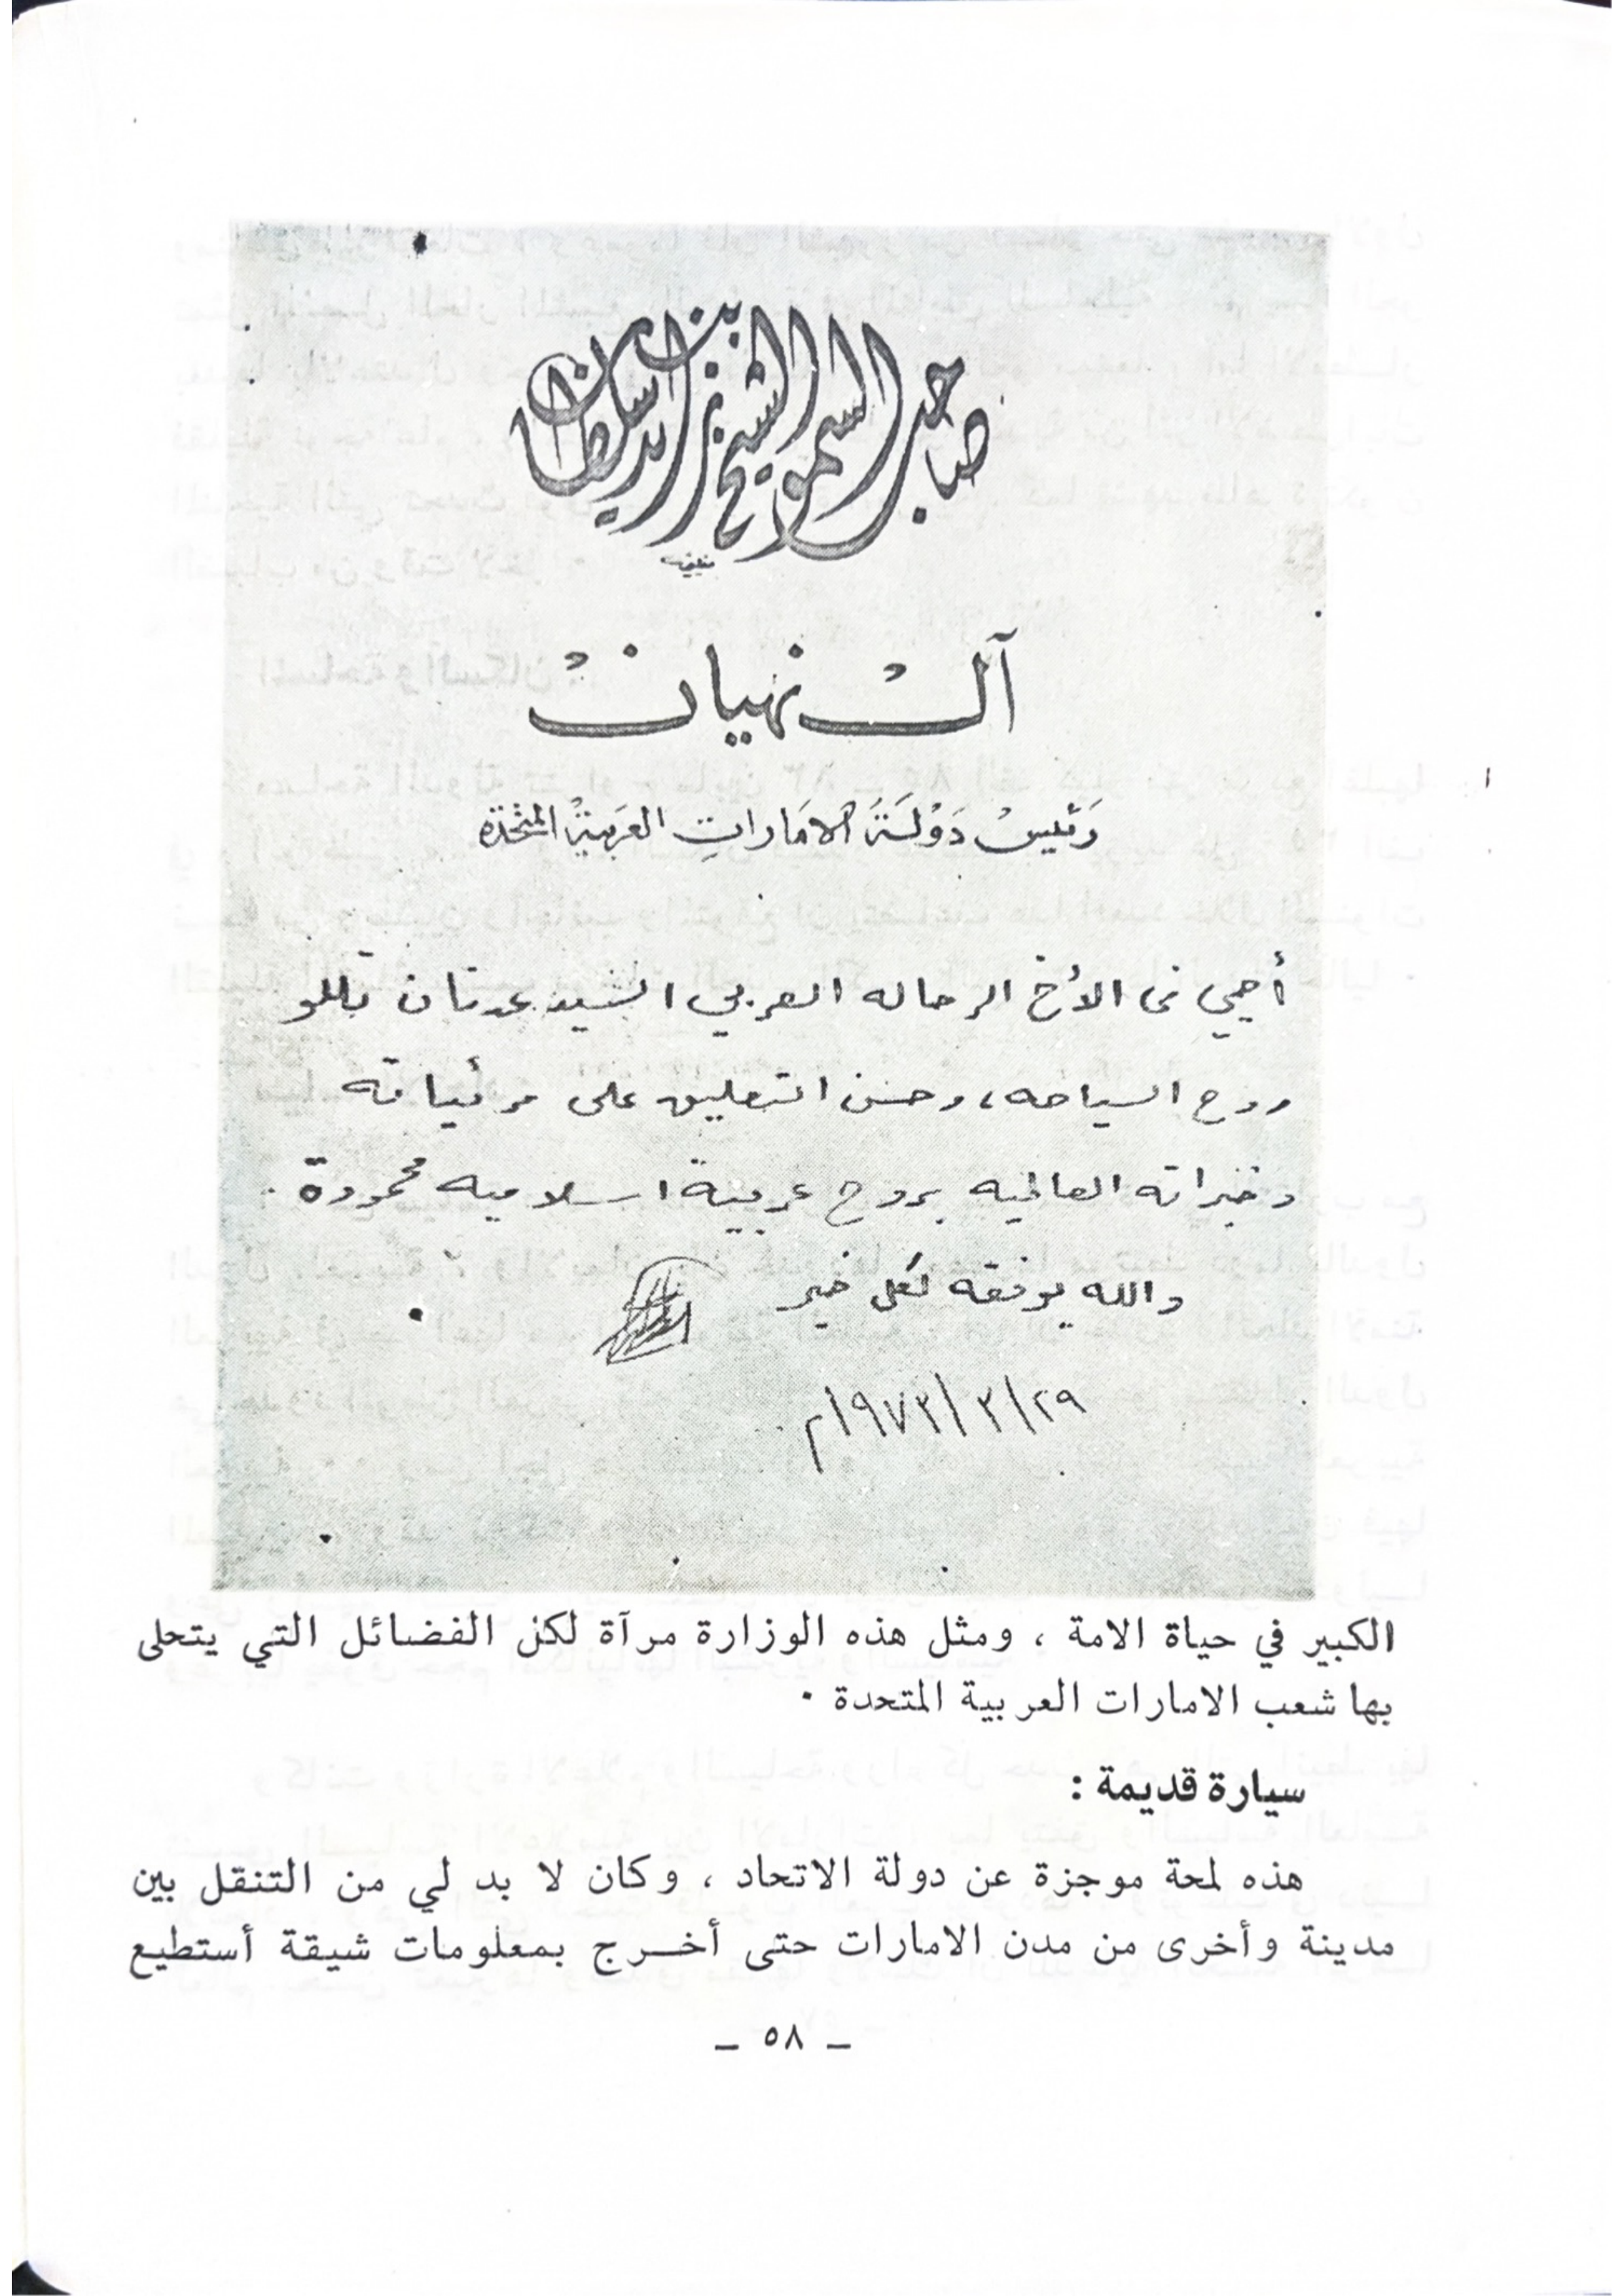 صاحب السمو الشيخ زايد بن سلطان
آل نهيان
رَئيسْ دَوْلَة الامَاراتِ العَرَبيَّة المتَّحَدَة
أحيي في الأخ الرحاله العربي السيد عدنان تللو
روح السياحه، وحسن التعليق على مرئياته
وخبراته العالميه بروح عربية اسلاميه محمودة .
والله يوفقه لكل خير
٢٩/ ٣/ ١٩٧٣م
الكبير في حياة الامة ، ومثل هذه الوزارة مرآة لكل الفضائل التي يتحلى
بها شعب الامارات العربية المتحدة ٠
سيارة قديمة :
هذه لمحة موجزة عن دولة الاتحاد ، وكان لا بد لي من التنقل بين
مدينة وأخرى من مدن الامارات حتى أخـــرج بمعلومات شيقة أستطيع
ـ ٥٨ ـ